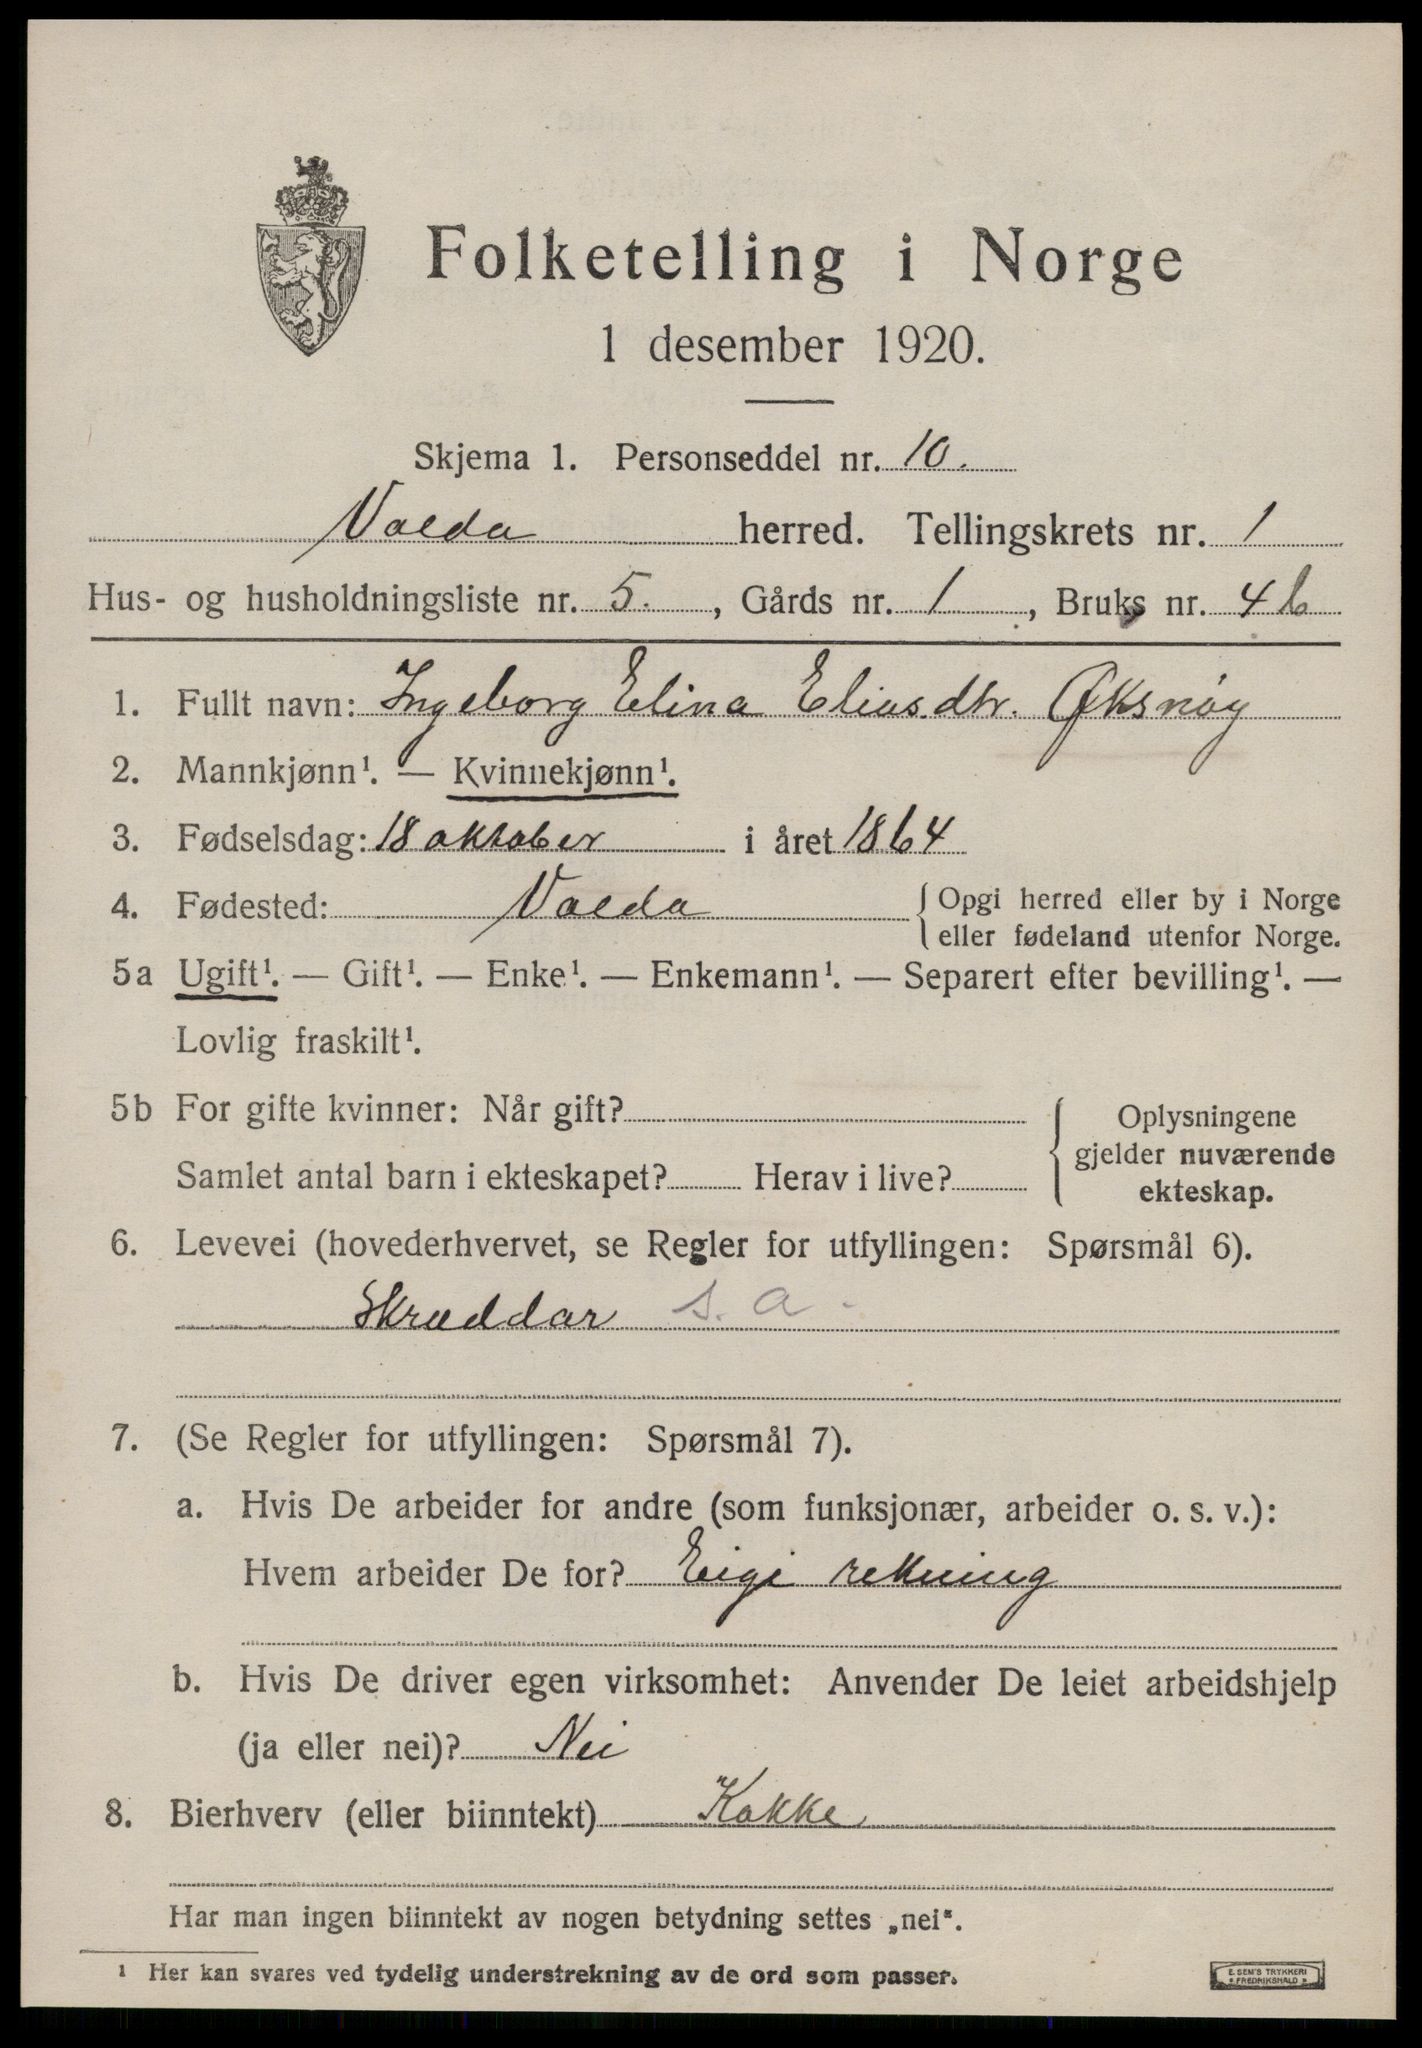 Folketelling i Norge
1 desember 1920.
Skjema 1. Personseddel nr. 10.
Volda herred. Tellingskrets nr. 1
Hus- og husholdningsliste nr. 5. , Gårds nr. 1 , Bruks nr. 4 b
1. Fullt navn: Ingeborg Elina Eliasdtr. Øksnøy
2. Mannkjønn¹. — Kvinnekjønn¹.
3. Fødselsdag: 18 oktober i året 1864
4. Fødested: Volda { Opgi herred eller by i Norge
eller fødeland utenfor Norge.
5a Ugift¹. — Gift¹. — Enke¹. — Enkemann¹. — Separert efter bevilling¹. —
Lovlig fraskilt¹.
5b For gifte kvinner: Når gift?
Samlet antal barn i ekteskapet? Herav i live?
Oplysningene
gjelder nuværende
ekteskap.
6. Levevei (hovederhvervet, se Regler for utfyllingen: Spørsmål 6).
Skreddar s. a.
7. (Se Regler for utfyllingen: Spørsmål 7).
a. Hvis De arbeider for andre (som funksjonær, arbeider o. s. v.):
Hvem arbeider De for? Eigi rekning
b. Hvis De driver egen virksomhet: Anvender De leiet arbeidshjelp
(ja eller nei)? Nei
8. Bierhverv (eller biinntekt) Kokke
Har man ingen biinntekt av nogen betydning settes „nei“.
¹ Her kan svares ved tydelig understrekning av de ord som passer.
E. SEM'S TRYKKERI
FREDRIKSHALD